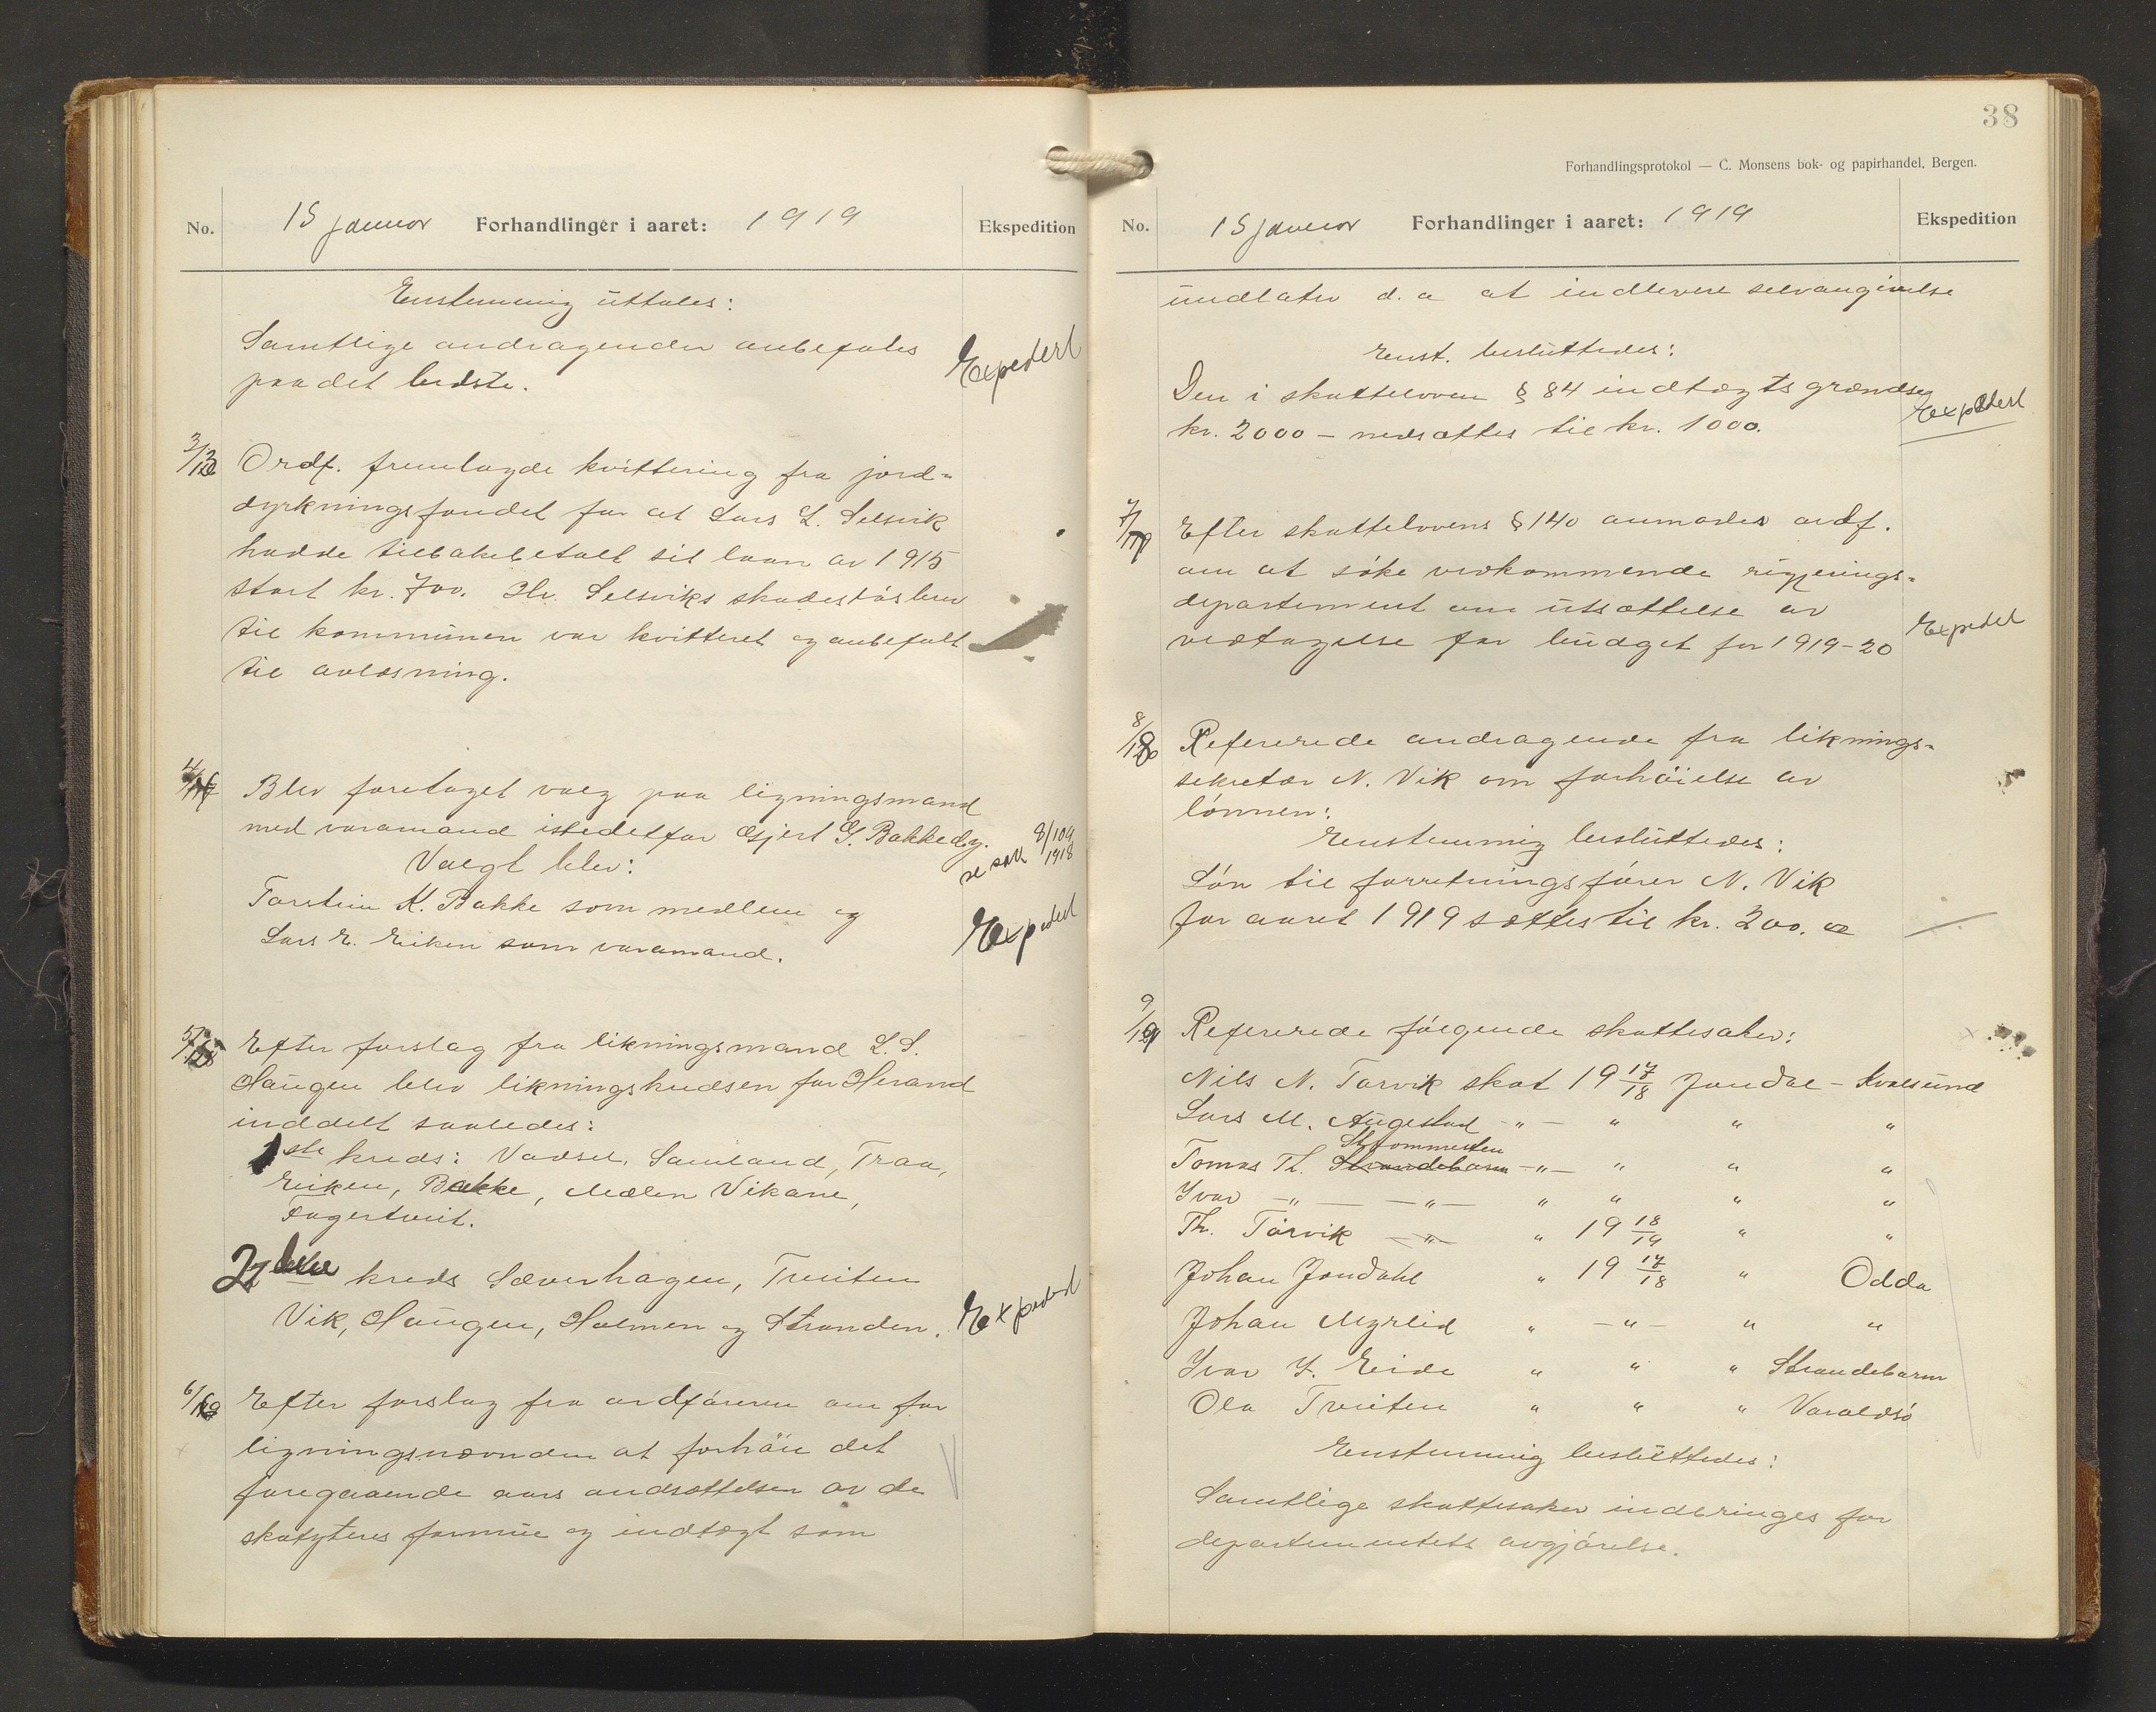 No. 15 januar Forhandlinger i aaret: 1919 Ekspedition
Enstemmig uttales:
Samtlige andragender anbefales
paa det bedste.
Expedert
3/13 Ordf. fremlagde kvittering fra jord-
dyrkningsfondet for at Lars L. Selsvik
hadde tilbakebetalt sit laan av 1915
stort kr. 700. Hr. Selsviks skadeslösbrev
til kommunen var kvitteret og anbefalt
til avlæsning.
Blev foretaget valg paa ligningsmand
med varamand istedetfor Gjert G. Bakke d.y.
se sak 8/109 1918
Valgt blev:
Torstein K. Bakke som medlem og
Lars E. Eiken som varamand.
Expedert
Efter forslag fra likningsmand L. S.
Haugen blev likningskredsen for Herand
inddelt saaledes:
1ste kreds: Vadsel, Samland, Traa,
Eiken, Bakke, Mælen Vikane,
Fagertveit.
2den kreds Sæverhagen, Tveiten
Vik, Haugen, Holmen og Stranden.
Expedert
Efter forslag fra ordföreren om for
ligningsnævnden at forhöie det
foregaaende aars andsættelser av de
skatyteres formue og indtægt som
38
Forhandlingsprotokol — C. Monsens bok- og papirhandel, Bergen.
No. 15 januar Forhandlinger i aaret: 1919 Ekspedition
undlater d. a at indlevere selvangivelse
Enst. besluttedes:
Den i skatteloven § 84 indtægtsgrændse
kr. 2000 – nedsættes til kr. 1000.
Expedert
Efter skattelovens § 140 anmodes ordf.
om at söke vedkommende regjerings-
departement om utsættelse av
vedtagelse for budget for 1919-20
Expedet
8/18 Refererede andragende fra liknings-
sekretær N. Vik om forhöielse av
lönnen:
Enstemmig besluttedes:
Lön til forretningsförer N. Vik
for aaret 1919 sættes til kr. 200.
9/19 Refererede fölgende skattesaker:
Nils N. Torvik skat 19 17/18 Jondal – Kvalsund
Lars M. Augestad -"- " " "
Strommesten
Tomas Th. Strandebarm -"- " " "
Ivar -"- -"- " " " "
Th. Törvik -"- " 19 18/19 " "
Johan Jondahl " 19 17/18 " Odda
Johan Myrlid " -"- " "
Ivar I. Eide " " " Strandebarm
Ola Tveiten " " " Varaldsö
Enstemmig besluttedes:
Samtlige skattesaker indbringes for
departementets avgjörelse.